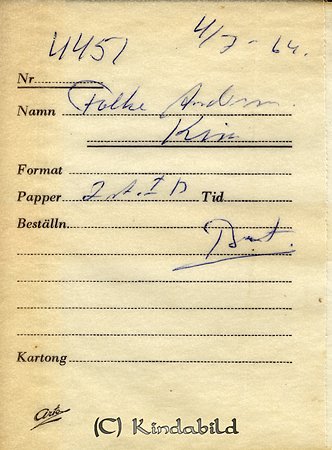 4451 4/7-64.
Nr
Namn Folke Anderson
Format
Papper 2 st. I D Tid
Beställn.
Kartong
(C) Kindabild